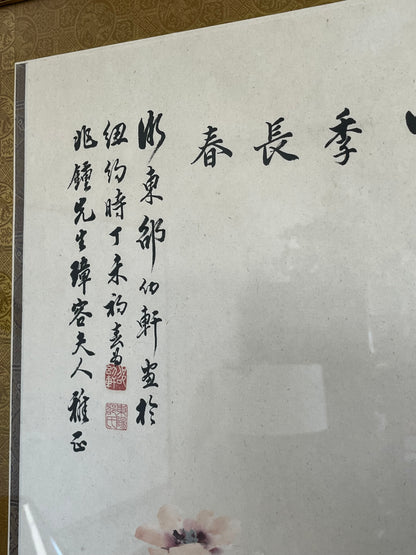 季長春
浙東邵幼軒畫於
紐約時丁未初春為
兆鍾先生璋容夫人雅正